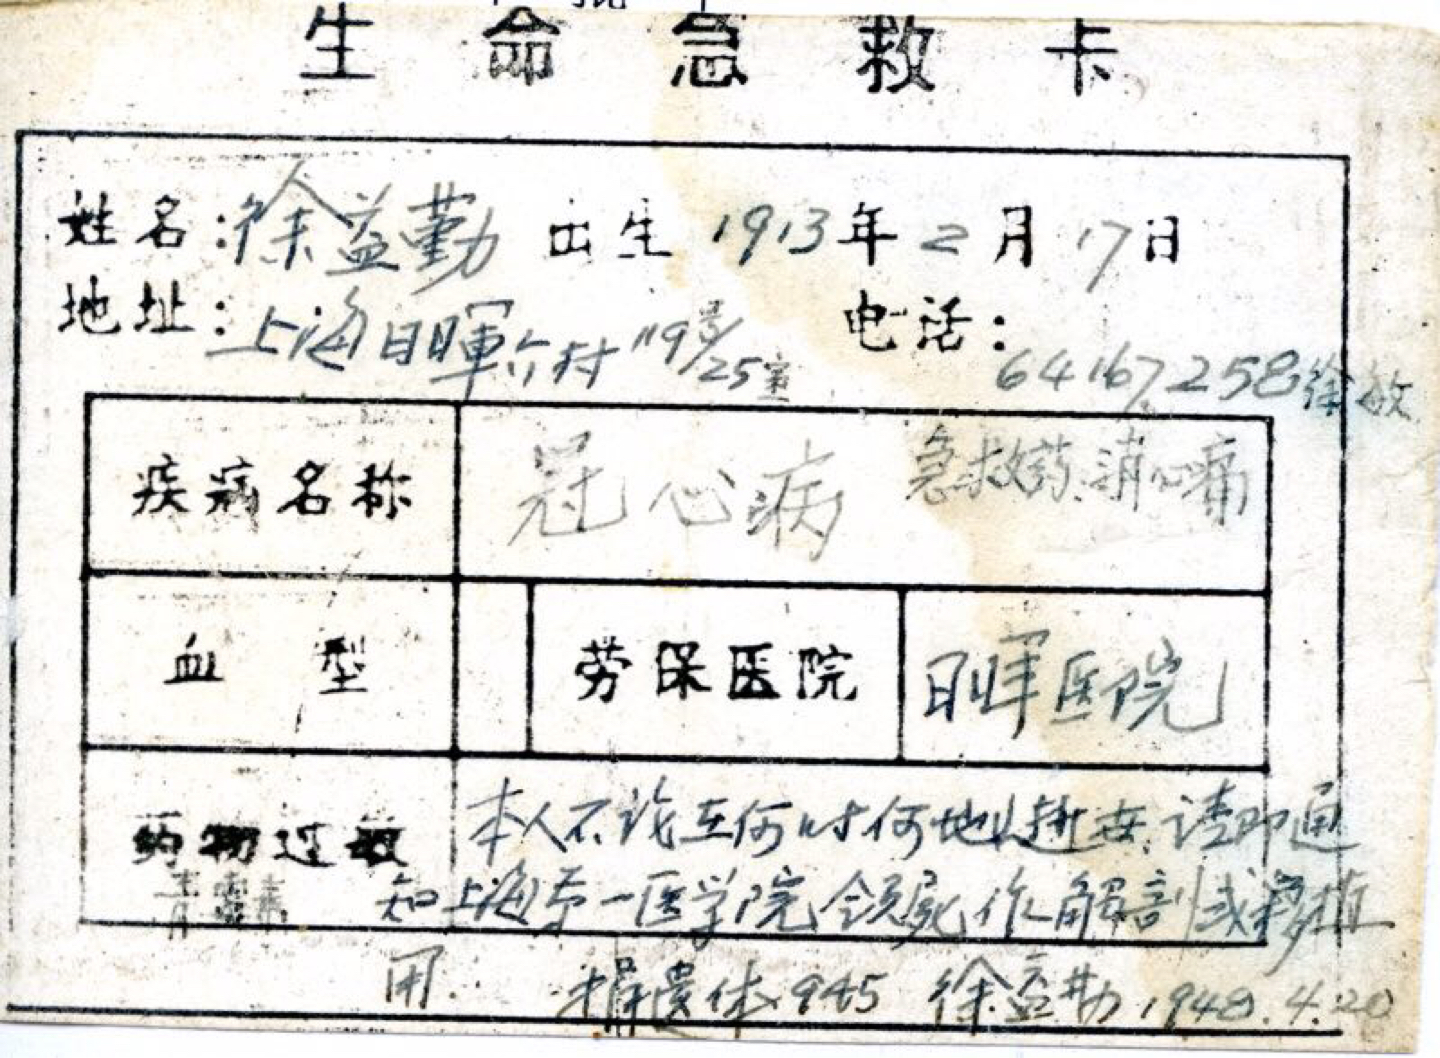 生命急救卡
姓名:徐益勤 出生 1913年2月17日
地址:上海日暉六村119号/25室 电话:64167258徐敏
疾病名称 冠心病 急救药:消心痛
血型 劳保医院 日暉医院
药物过敏 本人不论在何时何地逝世,请即通
青霉素 知上海第一医学院领屍作解剖或移植
用. 捐遗体945 徐益勤 1948.4.20